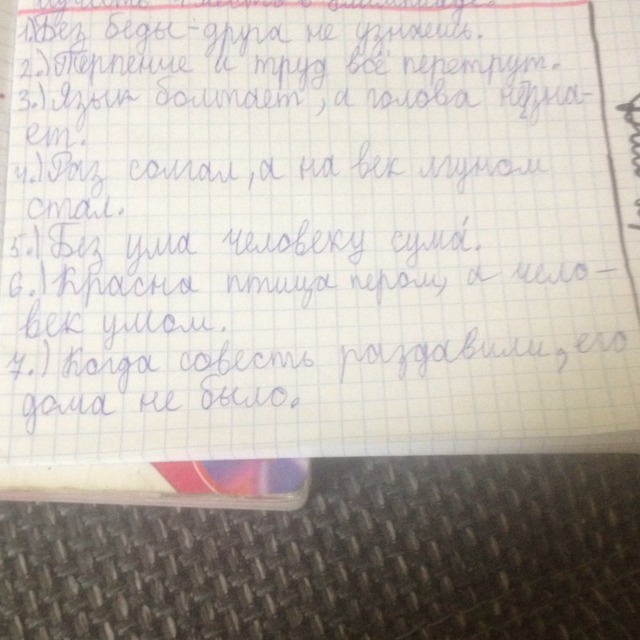 1) Без беды - друга не узнаешь.
2.) Терпение и труд всё перетрут.
3.) Язык болтает, а голова не зна-
ет.
4.) Раз солгал, а на век лгуном
стал.
5.) Без ума человеку сума́.
6.) Красна птица пером, а чело-
век умом.
7.) Когда совесть раздавили, его
дома не было.